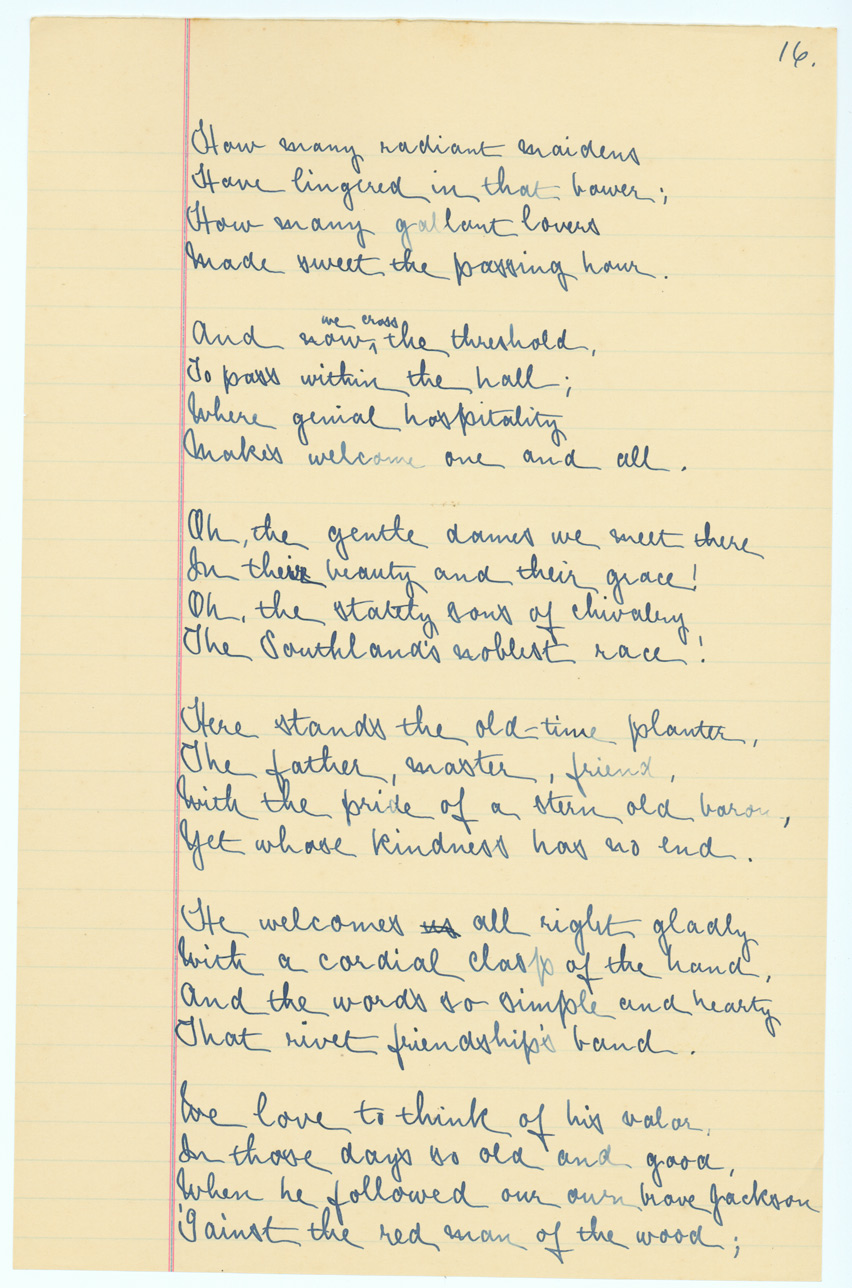 16.
How many radiant maidens
Have lingered in that bower;
How many gallant lovers
Made sweet the passing hour.
And now, we cross the threshold,
To pass within the hall;
Where genial hospitality
Makes welcome one and all.
Oh, the gentle dames we meet there
In their beauty and their grace!
Oh, the stately sons of chivalry
The Southland's noblest race!
Here stands the old-time planter,
The father, master, friend,
With the pride of a stern old baron,
Yet whose kindness has no end.
He welcomes us all right gladly
With a cordial clasp of the hand,
And the words so simple and hearty
That rivet friendship's band.
We love to think of his valor,
In those days so old and good,
When he followed our own brave Jackson
'Gainst the red man of the wood;